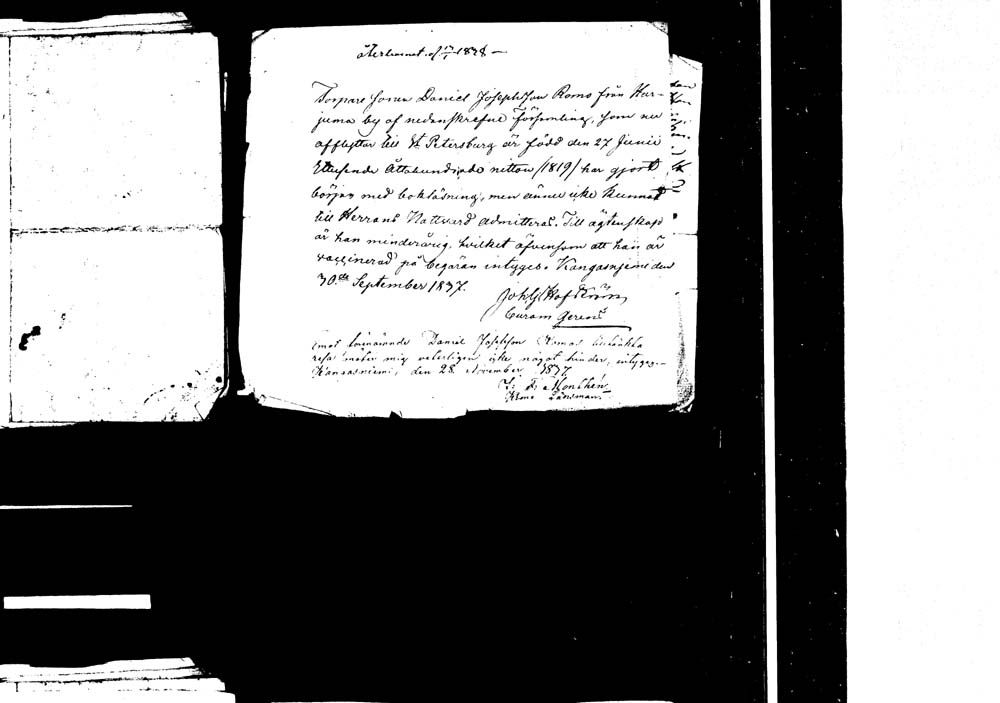 återkommet d. 17/1 1838 —
Torpare sonen Daniel Josephson Romo från Har-
juma by af nedanskrefne Församling, som nu
afflyttar till St Petersburg är född den 27 Junii
Ettusende Åttahundrade nitton /1819/ har gjort
början med bokläsning, men ännu icke kunnat
till Herrans Nattvard admitteras. Till ägtenskap
är han minderårig, hvilket äfvensom att han är
vaccinerad på begäran intygas. Kangasnjemi den
30de September 1837.
Joh G
Curam Gerens
mot Daniel Josephson
resa möter mig veterligen icke något hinder, intygar
Kangasniemi, den 28 November 1837.
Länsman